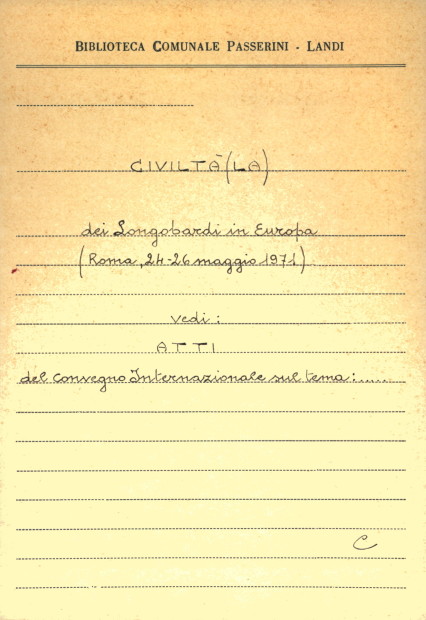 BIBLIOTECA COMUNALE PASSERINI - LANDI
CIVILTÀ (LA)
dei Longobardi in Europa
(Roma, 24-26 maggio 1971)
vedi:
ATTI
del convegno Internazionale sul tema:.....
C